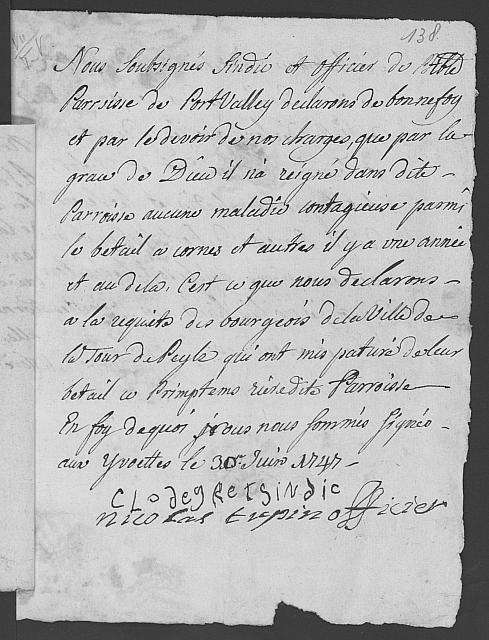 138
Nous soubsignés Sindic et officier de
Parrsisse de Port Valley declarons de bonnefoy
et par le devoir de nos charges, que par la
grace de Dieu il n'a reigné dans dite
Parroisse aucune maladie contagieuse parmi
le betail a cornes et autres il y a une année
et au dela, C'est ce que nous declarons
a la requete des bourgeois de la Ville de
la Tour de Peylz qui ont mis paturé de leur
betail ce Printems riere dite Parroisse
En foy de quoi nous nous sommes signéo
aux Yvoettes le Juin 1747
CloDegRet Sindic
nicolas officier